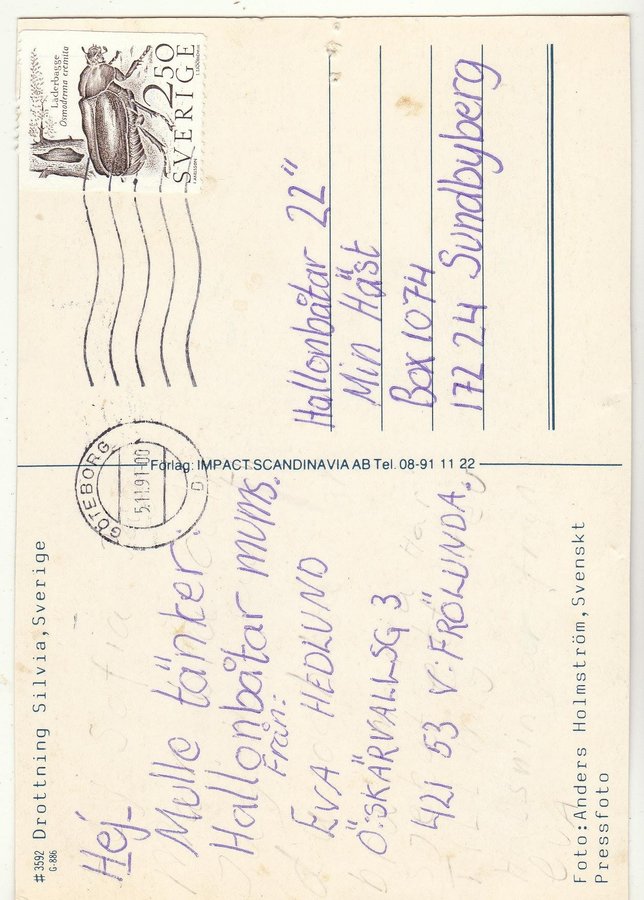 #3592 Drottning Silvia, Sverige
G-886
Hej
Mulle tänker:
Hallonbåtar mums.
Från:
EVA HEDLUND
Ö:SKÄRVALLSG 3
421 53 V:FRÖLUNDA.
Foto: Anders Holmström, Svenskt
Pressfoto
Förlag: IMPACT SCANDINAVIA AB Tel. 08-91 11 22
GÖTEBORG
5.11.91-00
D
Läderbagge
Osmoderma eremita
2.50
SVERIGE
Hallonbåtar 22"
Min Häst
Box 1074
172 24 Sundbyberg